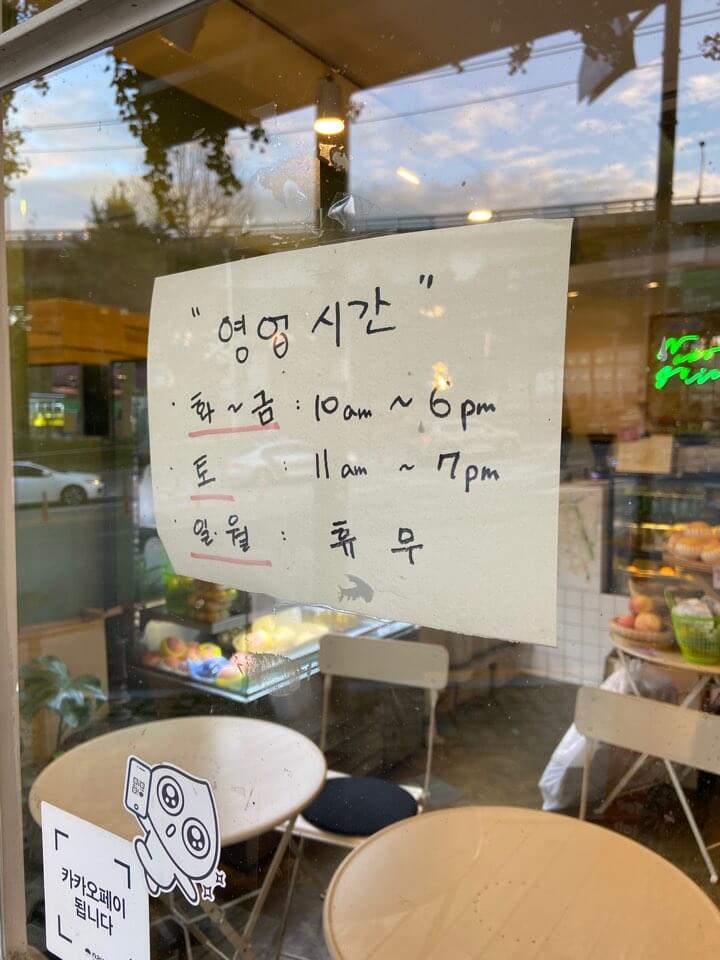 " 영업 시간 "
· 화 ~ 금 : 10 am ~ 6 pm
· 토 : 11 am ~ 7 pm
· 일·월 : 휴 무
카카오페이
됩니다